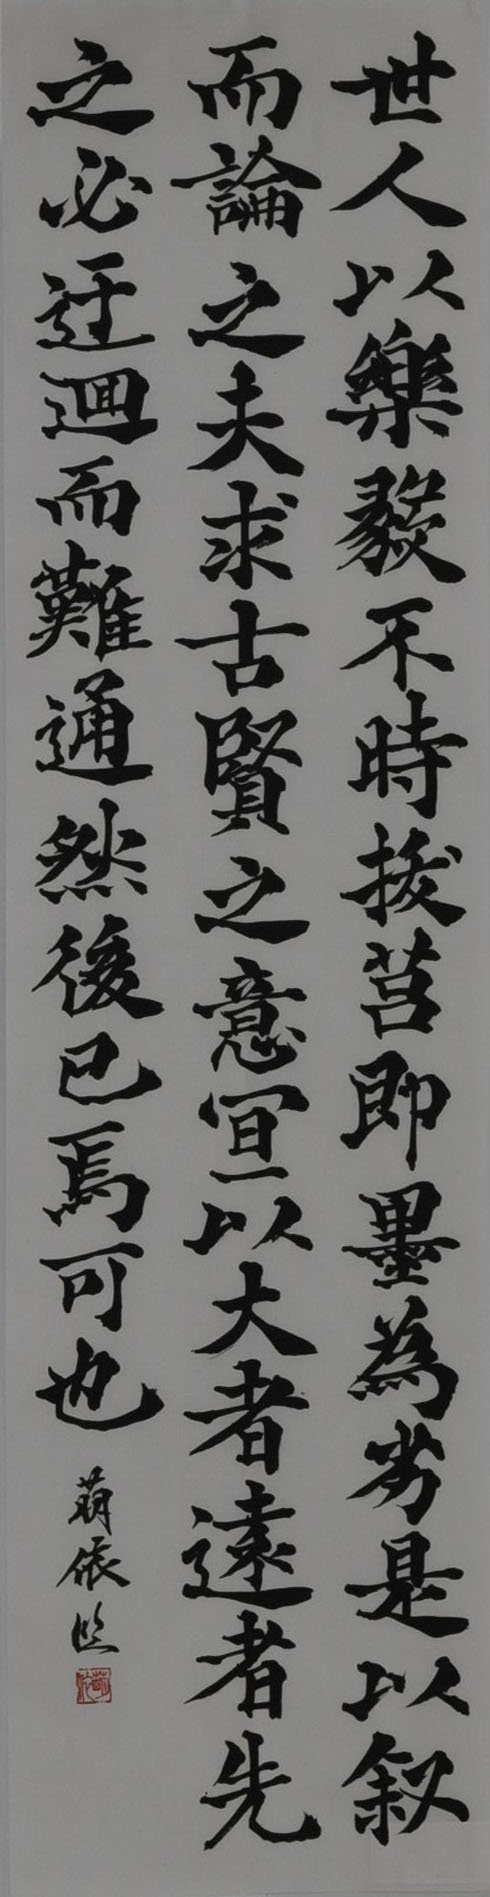 世人以樂毅不時拔莒即墨為劣是以叙
而論之夫求古賢之意冝以大者遠者先
之必迂迴而難通然後已焉可也
萌依臨